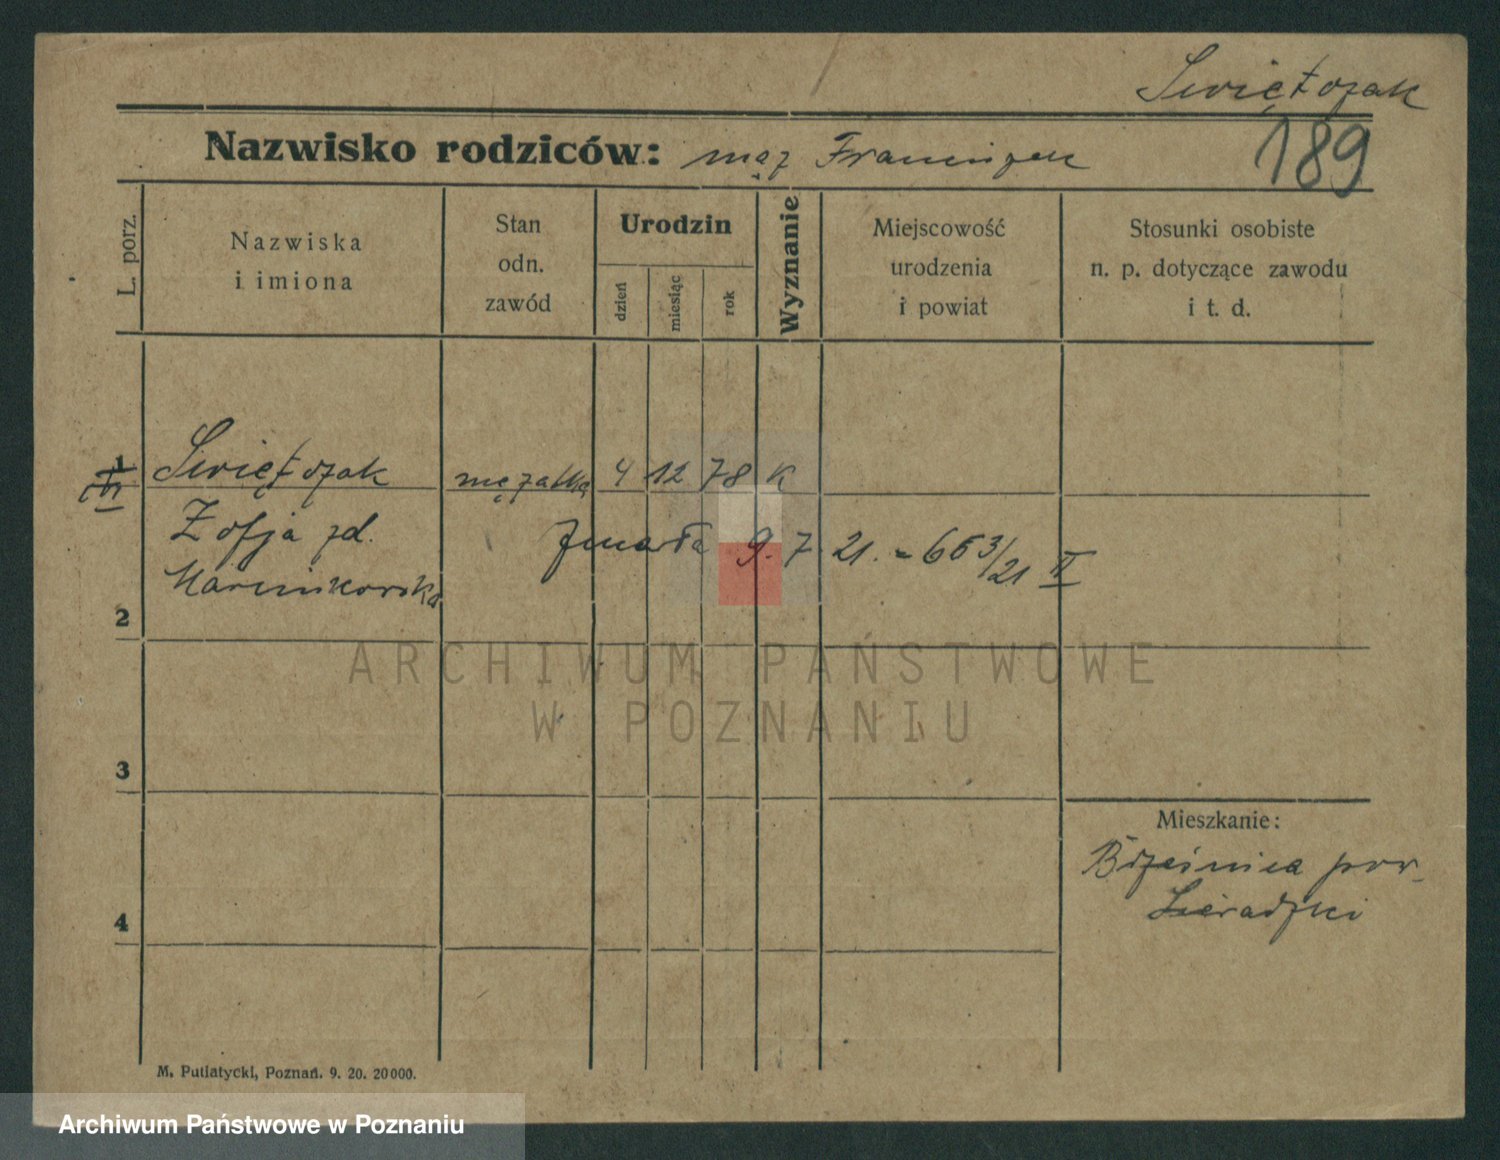 Swiętożak
189
Nazwisko rodziców: mąż Franciszek
L. porz.
Nazwiska
i imiona
Stan
odn.
zawód
Urodzin
dzień
miesiąc
rok
Wyznanie
Miejscowość
urodzenia
i powiat
Stosunki osobiste
n. p. dotyczące zawodu
i t. d.
1
Swiętożak mężatka 4 12 78 K
Zofja zd.
zmarła 9. 7. 21. = 663/21 II
2
ARCHIWUM PAŃSTWOWE
W POZNANIU
3
Mieszkanie:
Brzeźnica pow.
Sieradzki
4
M. Putiatycki, Poznań. 9. 20. 20000.
Archiwum Państwowe w Poznaniu